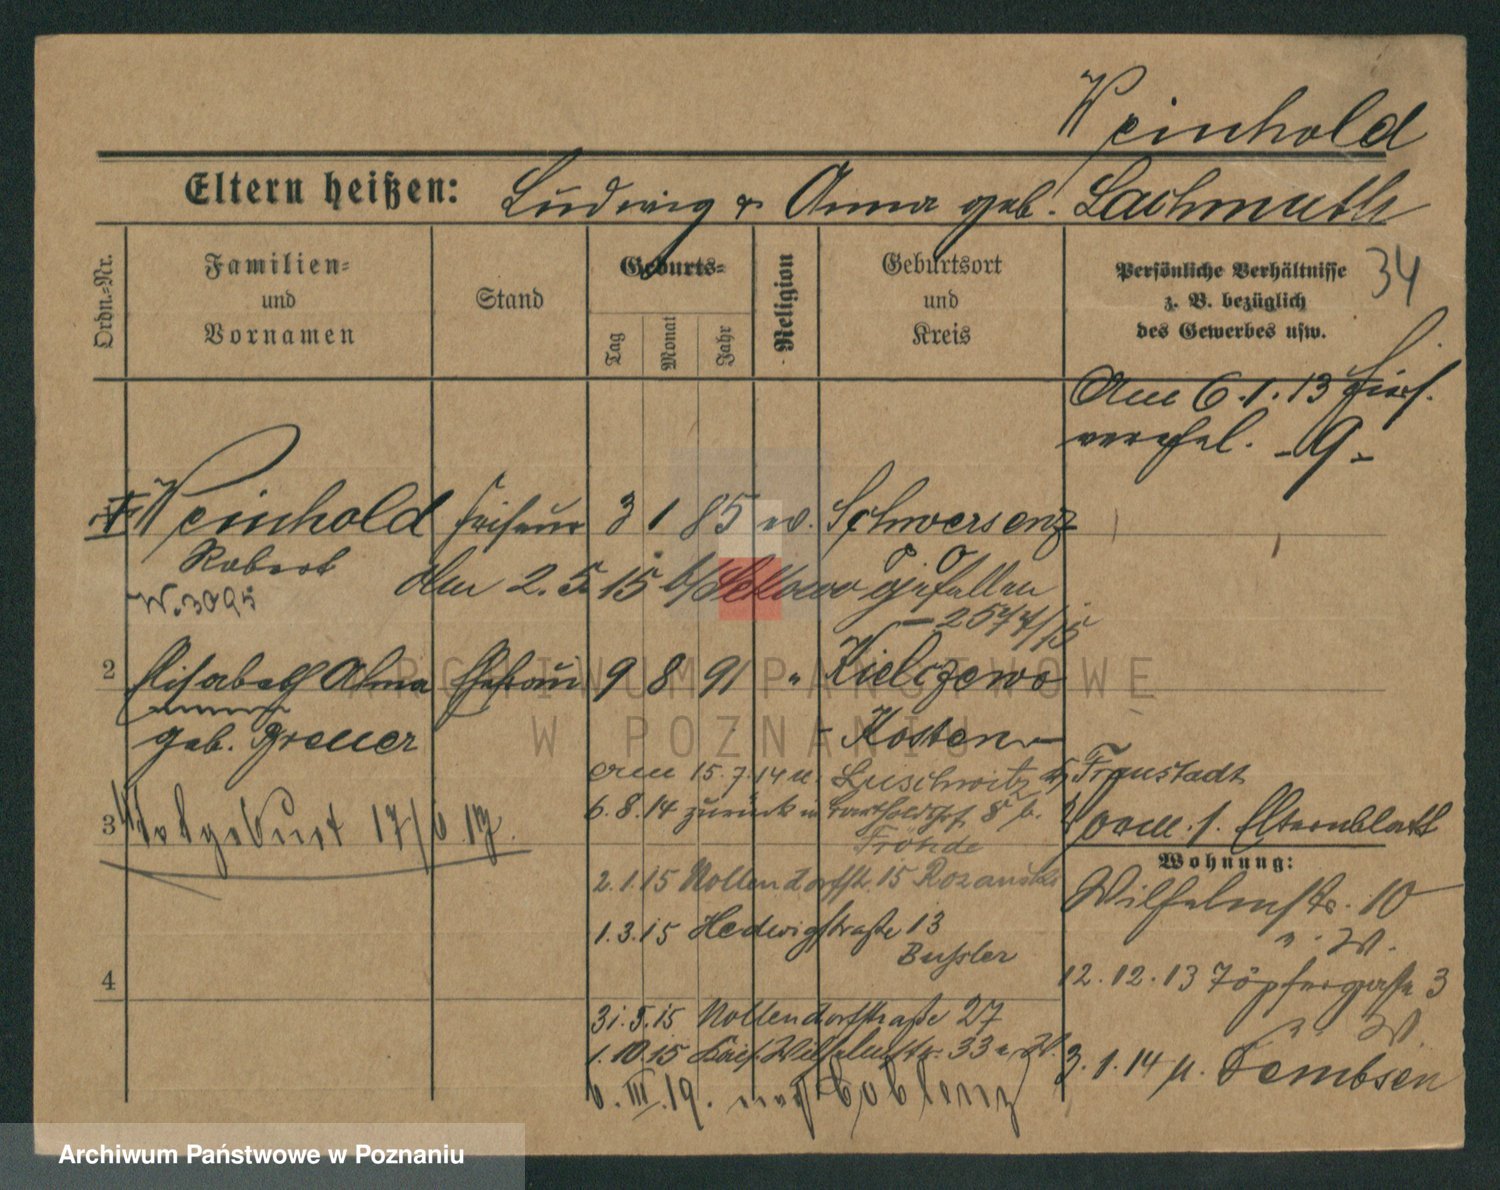 Weinhold
Eltern heißen: Ludwig & Anna geb. Lachmuth
34
Ordn.-Nr.
Familien-
und
Vornamen
Stand
Geburts-
Tag
Monat
Jahr
Religion
Geburtsort
und
Kreis
Persönliche Verhältnisse
z. B. bezüglich
des Gewerbes usw.
Am 6.1.13 hier
verehel. -9-
Weinhold Friseur 3 1 85 ev. Schwersenz
Robert Am 2.5.15 b/ gefallen
W. 3095
- 2577/15
2 Elisabeth Alma Ehefrau 9 8 91 " Kielczewo
geb. Greuer - Kosten -
Am 15.7.14 n. Luschwitz Fraustadt
6.8.14 zurück n 8 b.
Fröhde
3 Totgeburt 17/6 13.
vorm. 1. Elternblatt
Wohnung:
Wilhelmstr. 10
a. W.
2.1.15 Nollendorfstr. 15
1.3.15 Hedwigstraße 13
Bußler
12.12.13 Töpfergasse 3
a. W.
4
31.5.15 Nollendorfstraße 27
1.10.15 Kais. Wilhelmstr. 33 a. W.
3.1.14 n. Dembsen
6.III.19. nach Coblenz
ARCHIWUM PAŃSTWOWE
W POZNANIU
Archiwum Państwowe w Poznaniu